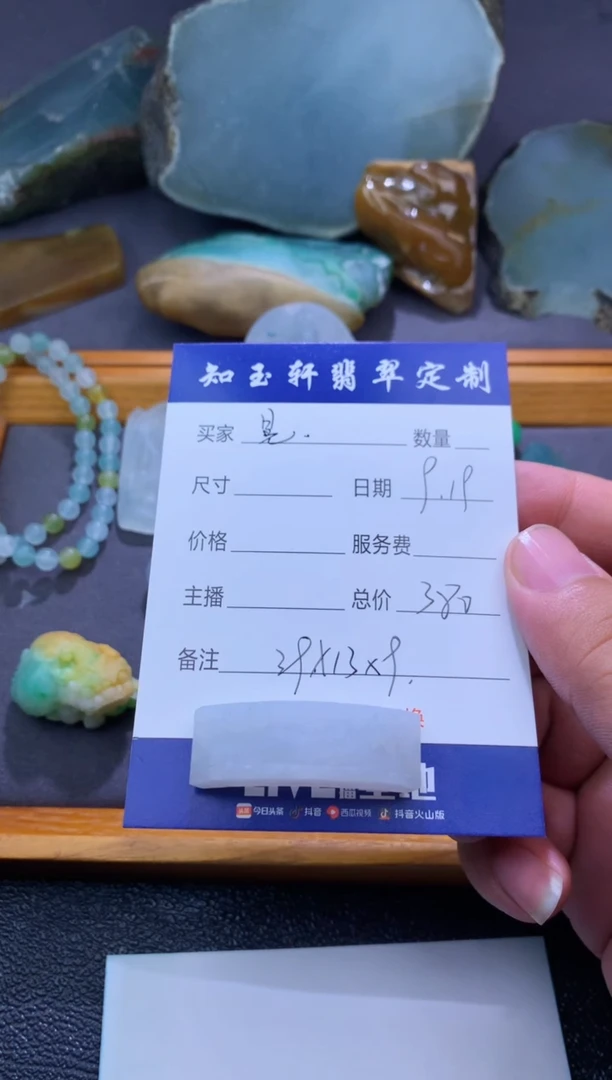 知玉轩翡翠定制
买家 数量
尺寸 日期 9.19
价格 服务费
主播 总价 380
备注 39X13X9.
今日头条 抖音 西瓜视频 抖音火山版